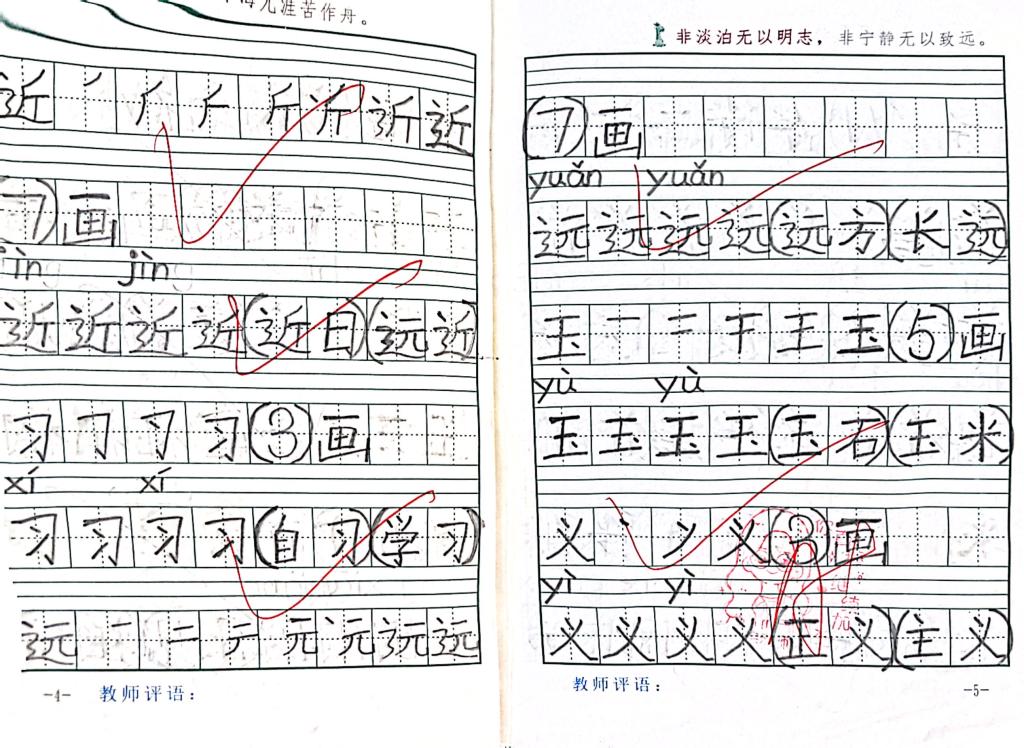 苦作舟。
近 ノ 厂 斤 斤 近 近
(7)画
jìn jìn
近 近 近 近 (近 日) (远 近)
习 𠃌 习 习 (3) 画
xí xí
习 习 习 习 (自 习) (学 习)
远 一 二 テ 元 远 远 远
-4- 教师评语：
非淡泊无以明志，非宁静无以致远。
(7)画
yuǎn yuǎn
远 远 远 远 (远 方) (长 远)
玉 一 二 干 王 玉 (5) 画
yù yù
玉 玉 玉 玉 (玉 石) (玉 米)
义 丶 ㇒ 义 (3) 画
yì yì
义 义 义 义 (正 义) (主 义)
教师评语： -5-